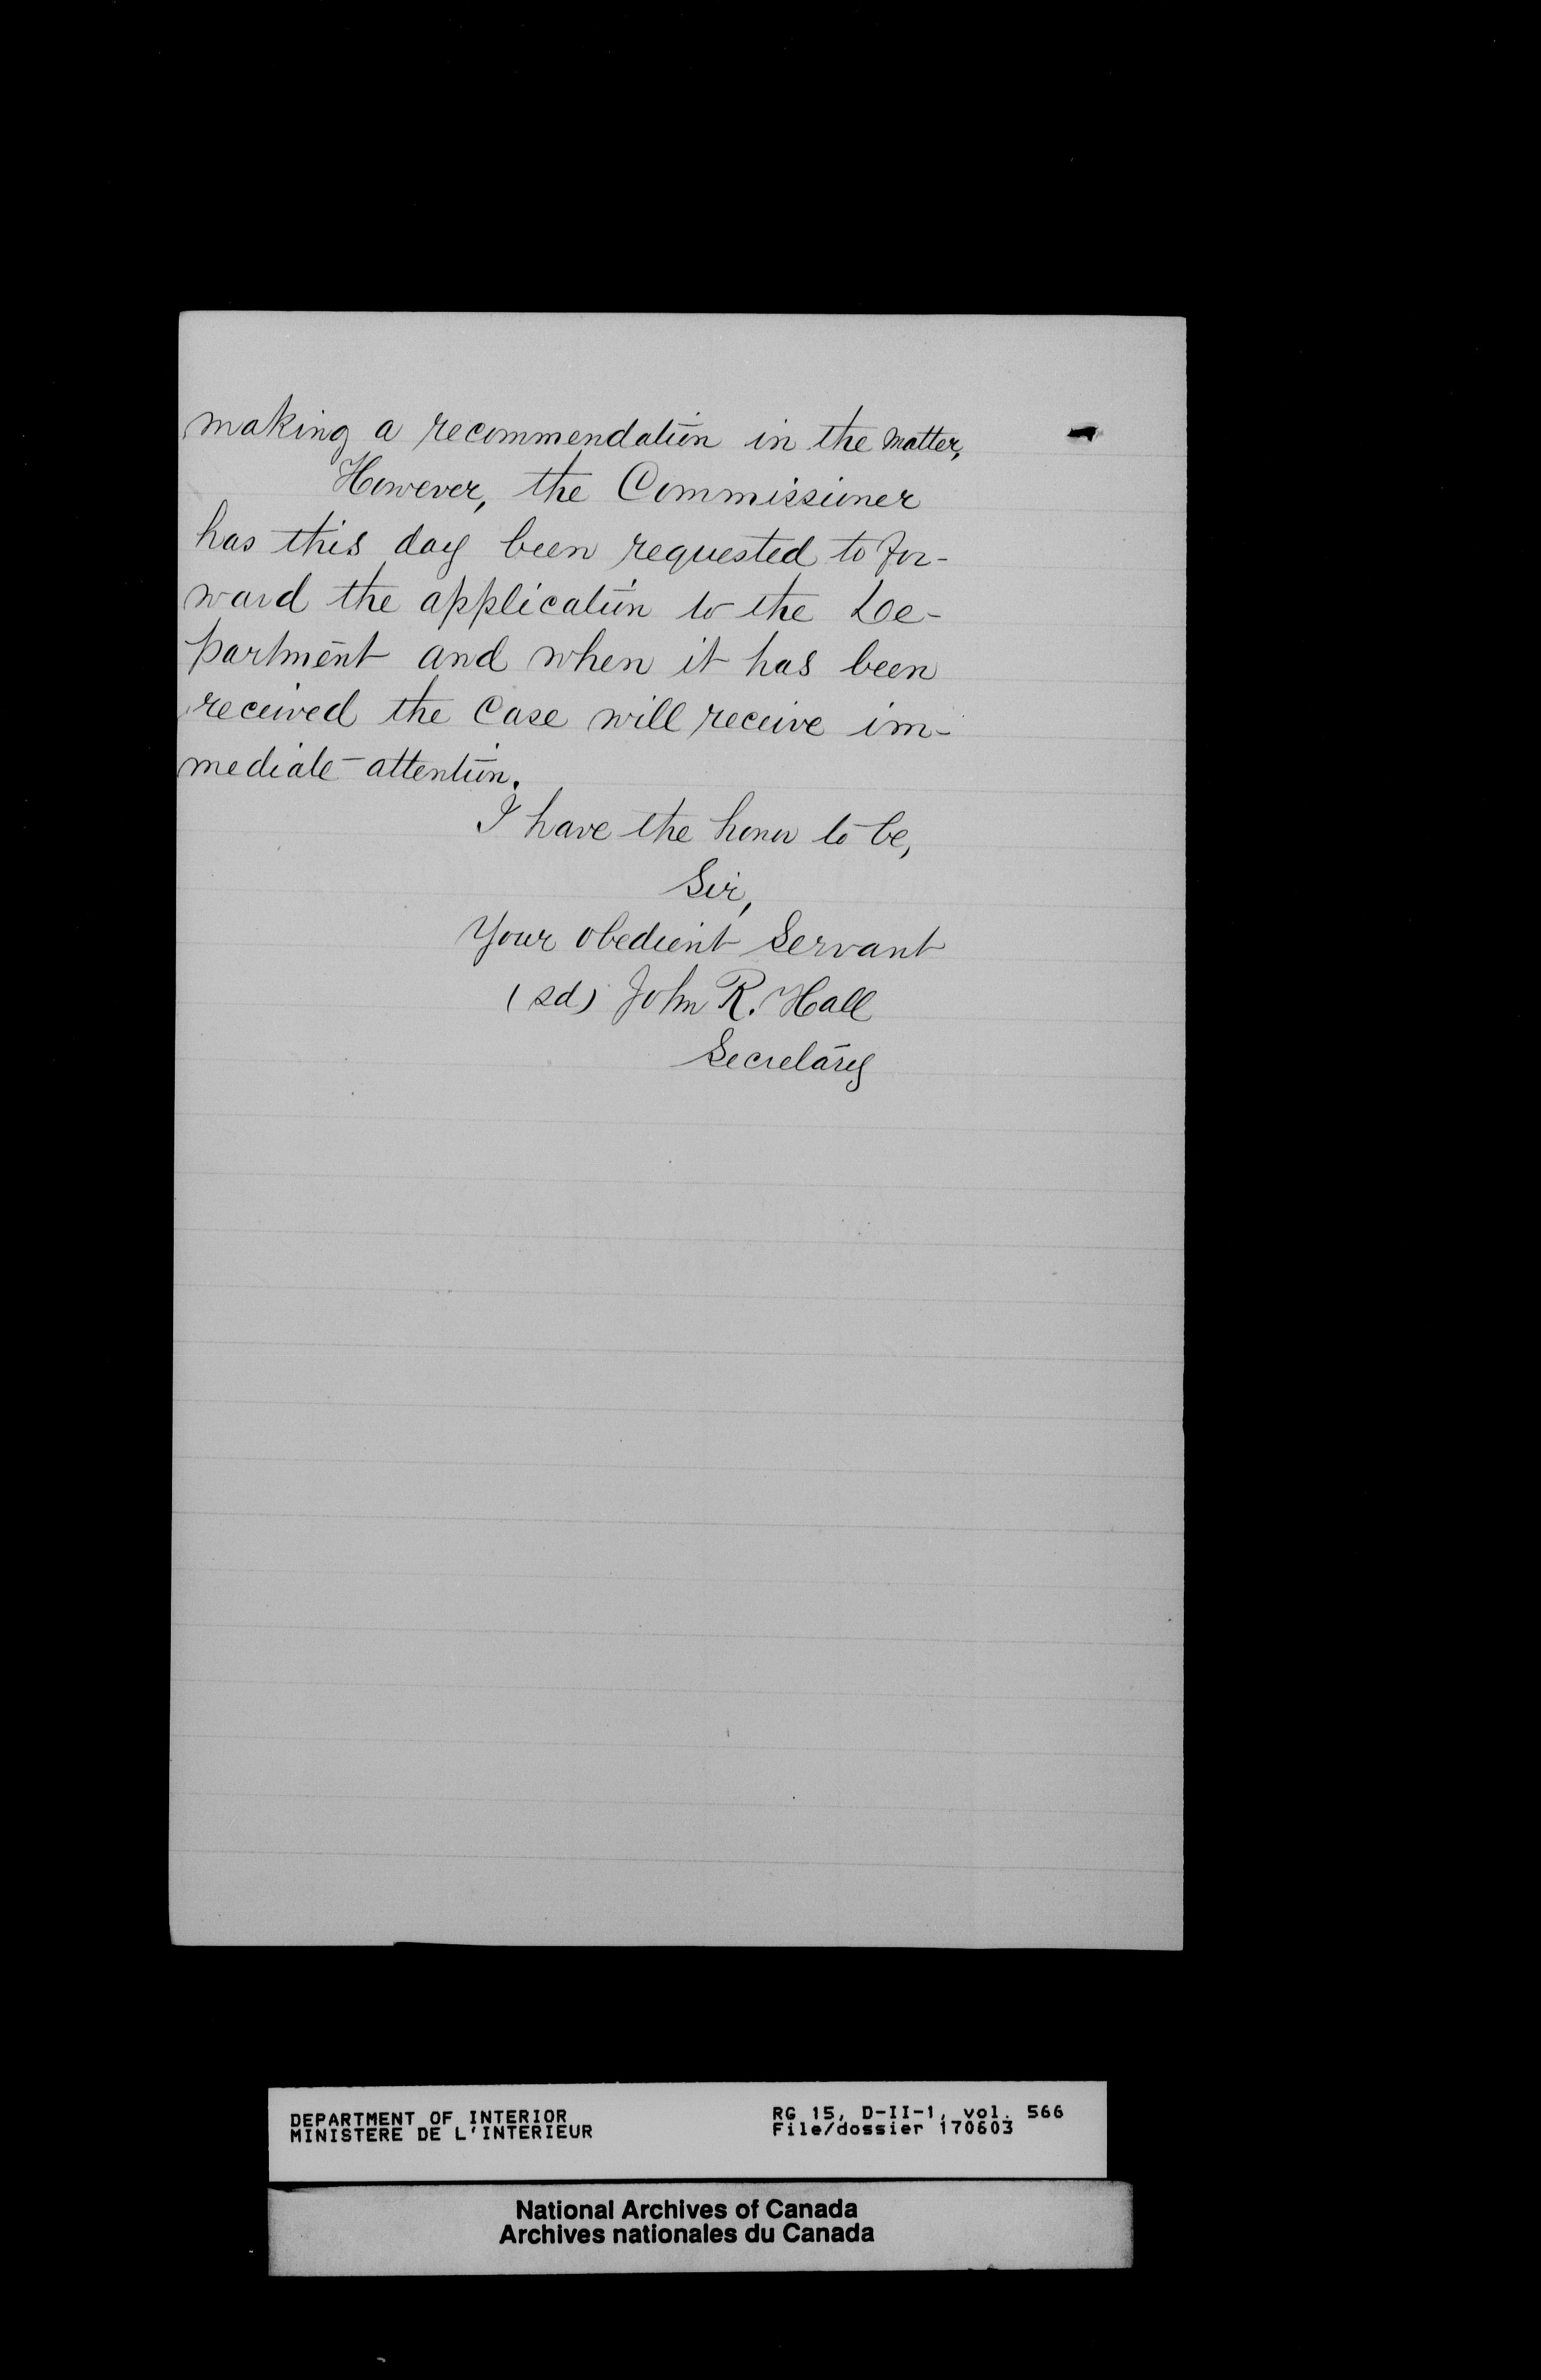 making a recommendation in the matter,
However, the Commissioner
has this day been requested to for-
ward the application to the De-
partment and when it has been
received the case will receive im-
mediate attention.
I have the honor to be,
Sir,
Your obedient Servant
(sd) John R. Hall
Secretary
DEPARTMENT OF INTERIOR
MINISTERE DE L'INTERIEUR
RG 15, D-II-1, vol. 566
File/dossier 170603
National Archives of Canada
Archives nationales du Canada